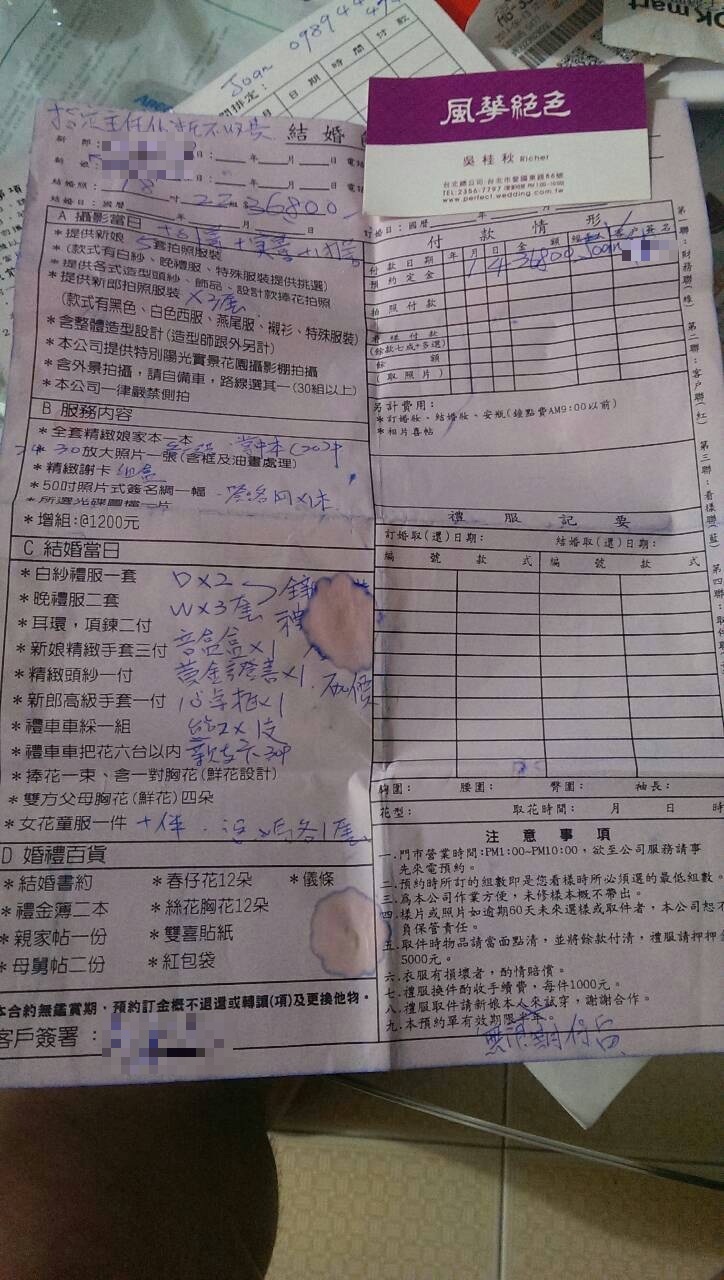 mart
Joan 0989
間排定:
日期 時間 付款
風華絕色
吳桂秋 Richer
台北總公司:台北市愛國東路86號
TEL:2356-7797
www.perfect.wedding.com.tw
指定主任化新不收費 結婚
新郎: 日: 年 月 日 電話
新娘: 日: 年 月 日 電話
結婚照: 18吋 22組 36800
結婚日:國曆 年 月 日
A 攝影當日
*提供新娘 5套拍照服裝
(款式有白紗、晚禮服、特殊服裝提供挑選)
*提供各式造型頭紗、飾品、設計款捧花拍照
*提供新郎拍照服裝 X3套
(款式有黑色、白色西服、燕尾服、襯衫、特殊服裝)
*含整體造型設計(造型師跟外另計)
*本公司提供特別陽光實景花園攝影棚拍攝
*含外景拍攝,請自備車,路線選其一(30組以上)
*本公司一律嚴禁側拍
B 服務內容
*全套精緻娘家本一本
24 30放大照片一張(含框及油畫處理)
*精緻謝卡
*50吋照片式簽名綢一幅
*所選光碟圖檔一片
*增組:@1200元
C 結婚當日
*白紗禮服一套 D×2
*晚禮服二套 W×3套
*耳環,項鍊二付
*新娘精緻手套三付 音盒盒×1
*精緻頭紗一付 黃金證書×1
*新郎高級手套一付
*禮車車綵一組
*禮車車把花六台以內
*捧花一束、含一對胸花(鮮花設計)
*雙方父母胸花(鮮花)四朵
*女花童服一件 +1件
D 婚禮百貨
*結婚書約 *春仔花12朵 *儀條
*禮金簿二本 *絲花胸花12朵
*親家帖一份 *雙喜貼紙
*母舅帖二份 *紅包袋
本合約無鑑賞期,預約訂金概不退還或轉讓(項)及更換他物。
客戶簽署:
訂婚日:國曆 年 月 日
付款情形
付款日期 年 月 日 金額 經手人 客戶簽名
預約定金 1 4 36800 Joan
拍照付款
看樣付款
(餘款七成+多選)
餘額
(取照片)
另計費用:
*訂婚妝、結婚妝、安瓶(鐘點費AM9:00以前)
*相片喜帖
禮服記要
訂婚取(還)日期: 結婚取(還)日期:
編號 款式 編號 款式
胸圍: 腰圍: 臀圍: 袖長:
花型: 取花時間: 月 日 時
注意事項
一.門市營業時間:PM1:00~PM10:00,欲至公司服務請事
先來電預約。
二.預約時所訂的組數即是您看樣時所必須選的最低組數。
三.為本公司作業方便,未修樣本概不帶出。
四.樣片或照片如逾期60天未來選樣或取件者,本公司恕不
負保管責任。
五.取件時物品請當面點清,並將餘款付清,禮服請押押金
5000元。
六.衣服有損壞者,酌情賠償。
七.禮服換件酌收手續費,每件1000元。
八.禮服取件請新娘本人來試穿,謝謝合作。
九.本預約單有效期限半年。
無限期保留
第一聯:財務聯(綠)
第二聯:客戶聯(紅)
第三聯:看樣聯(藍)
第四聯:取件